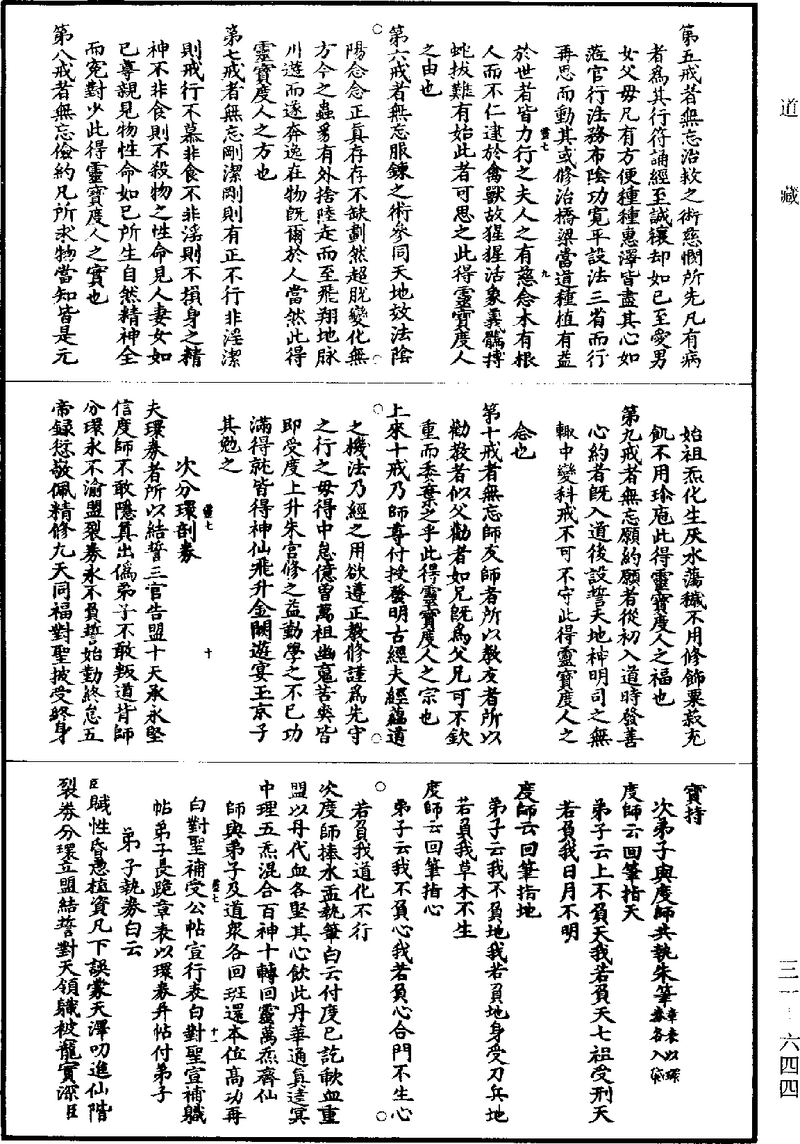 道藏
三一—六四四
第五戒者無忘治救之術慈憫所先凡有病
者為其行符誦經至誠禳却如已至愛男
女父母凡有方便種種惠澤皆盡其心如
涖官行法務布陰功寬平設法三省而行
再思而動其或修治橋梁當道種植有益
於世者皆力行之夫人之有慈念木有根
靈七
九
人而不仁逮於禽獸故猩猩沽象義鶻搏
蛇拔難有始此者可思之此得靈寶度人
之由也
第六戒者無忘服鍊之術參同天地效法陰
陽念念正真存存不缺劃然超脫變化無
方今之蟲豸有外捨陸走而至飛翔地脉
川遊而遂奔逸在物既爾於人當然此得
靈寶度人之方也
第七戒者無忘剛潔剛則有正不行非淫潔
則戒行不慕非食不非淫則不損身之精
神不非食則不殺物之性命見人妻女如
已尊親見物性命如已所生自然精神全
而寃對少此得靈寶度人之寶也
第八戒者無忘儉約凡所求物當知皆是元
始祖炁化生厌水蕩穢不用修飾粟菽充
飢不用珍庖此得靈寶度人之福也
第九戒者無忘願約願者從初入道時發善
心約者既入道後設誓天地神明司之無
輙中變科戒不可不守此得靈寶度人之
念也
第十戒者無忘師友師者所以教友者所以
勸教者似父勸者如兄既為父兄可不欽
重而委棄之乎此得靈寶度人之宗也
上來十戒乃師尊付授發明古經夫經蘊道
之機法乃經之用欲遵正教修謹為先守
之行之毋得中怠億曾萬祖幽寃苦爽皆
即受度上升朱宮修之益勤學之不已功
滿得就皆得神仙飛升金闕遊宴玉京子
其勉之
靈七
十
次分環剖券
夫環券者所以結誓三官告盟十天承永堅
信度師不敢隱真出偽弟子不敢叛道背師
分環永不渝盟裂券永不負誓始勤終怠五
帝録愆敬佩精修九天同福對聖披受終身
寶持
次弟子與度師共執朱筆
度師云回筆指天
弟子云上不負天我若負天七祖受刑天
若負我日月不明
度師云回筆指地
弟子云我不負地我若負地身受刀兵地
若負我草木不生
度師云回筆指心
弟子云我不負心我若負心合門不生心
若負我道化不行
次度師捧水盂執筆白云付度已訖歃血重
盟以丹代血各堅其心飲此丹華通真達冥
中理五炁混合百神十轉回靈萬炁齊仙
師與弟子及道衆各回班還本位高功再
白對聖補受公帖宣行表白對聖宣補職
靈七
十一
帖弟子長跪章表以環券并帖付弟子
弟子執券白云
臣賦性昏愚植資凡下誤蒙天澤叨進仙階
裂券分環立盟結誓對天領職被寵實深臣